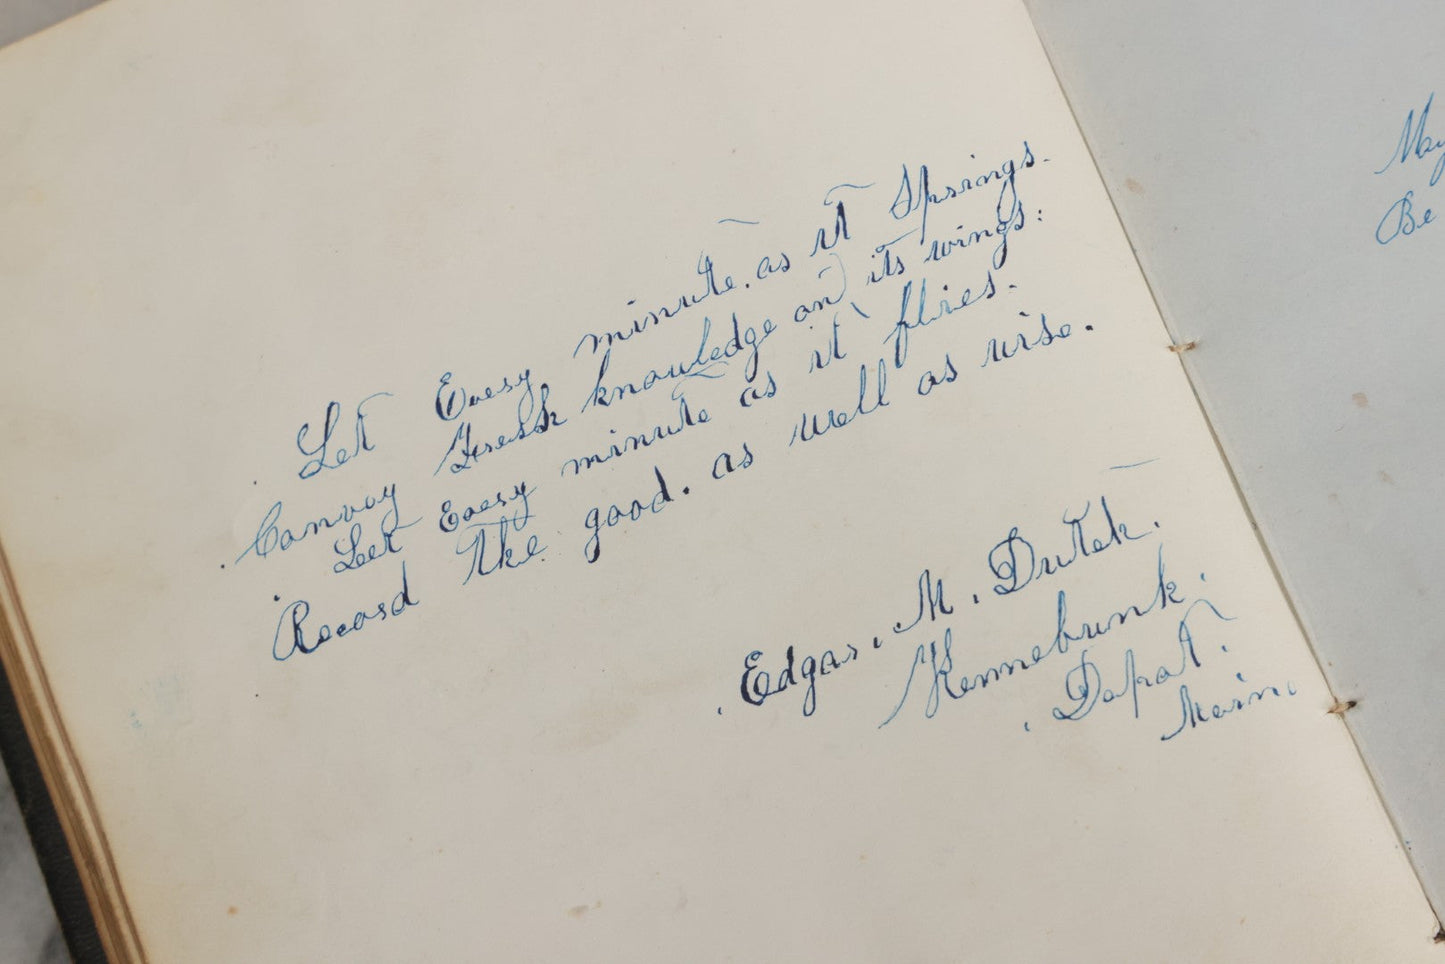 Let Every minute. as it Springs.
Convoy Fresh knowledge on its wings:
Leet Every minute as it flies.
Record the good. as well as wise.
Edgar. M. Dutch.
Kennebunk.
Dapot.
Main.
May
Be